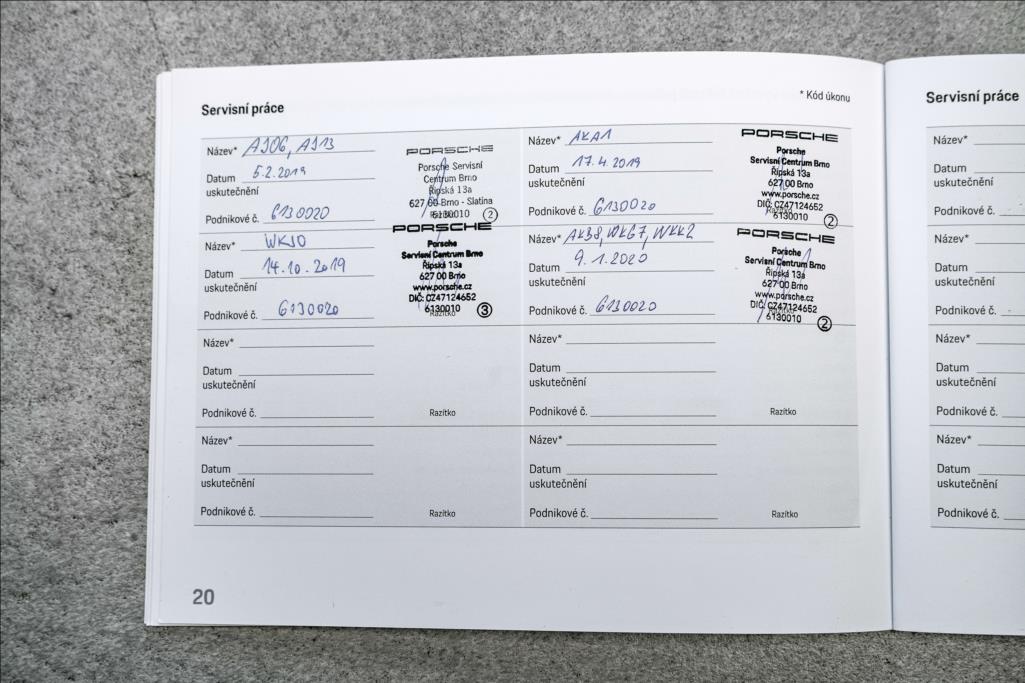 Servisní práce
* Kód úkonu
Název* AJ06, AJ13
Datum 5.2.2019
uskutečnění
Podnikové č. 6130020
PORSCHE
Porsche Servisní
Centrum Brno
Řipská 13a
627 00 Brno - Slatina
Razítko
6130010 2
Název* AKA1
Datum 17.4.2019
uskutečnění
Podnikové č. 6130020
PORSCHE
Porsche
Servisní Centrum Brno
Řipská 13a
627 00 Brno
www.porsche.cz
DIČ: CZ47124652
Razítko
6130010 2
Název* WKJ0
Datum 14.10.2019
uskutečnění
Podnikové č. 6130020
PORSCHE
Porsche
Servisní Centrum Brno
Řipská 13a
627 00 Brno
www.porsche.cz
DIČ: CZ47124652
6130010 3
Razítko
Název* AK38, WK67, WKK2
Datum 9.1.2020
uskutečnění
Podnikové č. 6130020
PORSCHE
Porsche
Servisní Centrum Brno
Řipská 13a
627 00 Brno
www.porsche.cz
DIČ: CZ47124652
Razítko
6130010 2
Název*
Datum
uskutečnění
Podnikové č.
Razítko
Název*
Datum
uskutečnění
Podnikové č.
Razítko
Název*
Datum
uskutečnění
Podnikové č.
Razítko
Název*
Datum
uskutečnění
Podnikové č.
Razítko
20
Servisní práce
Název*
Datum
uskutečnění
Podnikové č.
Název*
Datum
uskutečnění
Podnikové č.
Název*
Datum
uskutečnění
Podnikové č.
Název*
Datum
uskutečnění
Podnikové č.